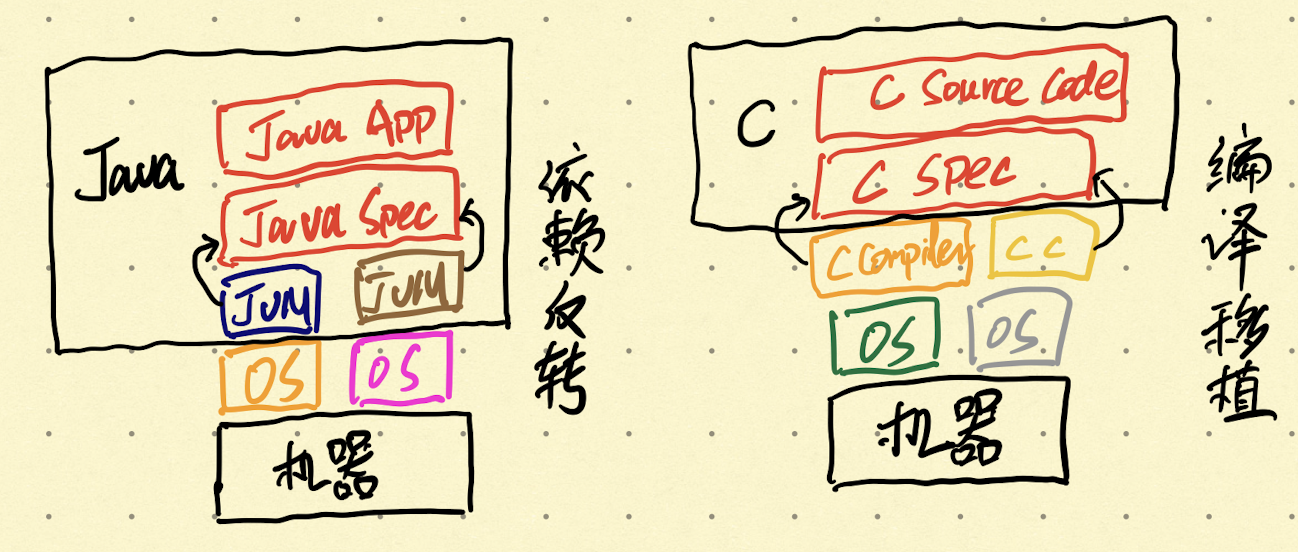 Java
Java App
Java Spec
JVM
JVM
OS
OS
机器
依赖反转
C
C Source Code
C Spec
C Compiler
CC
OS
OS
机器
编译移植